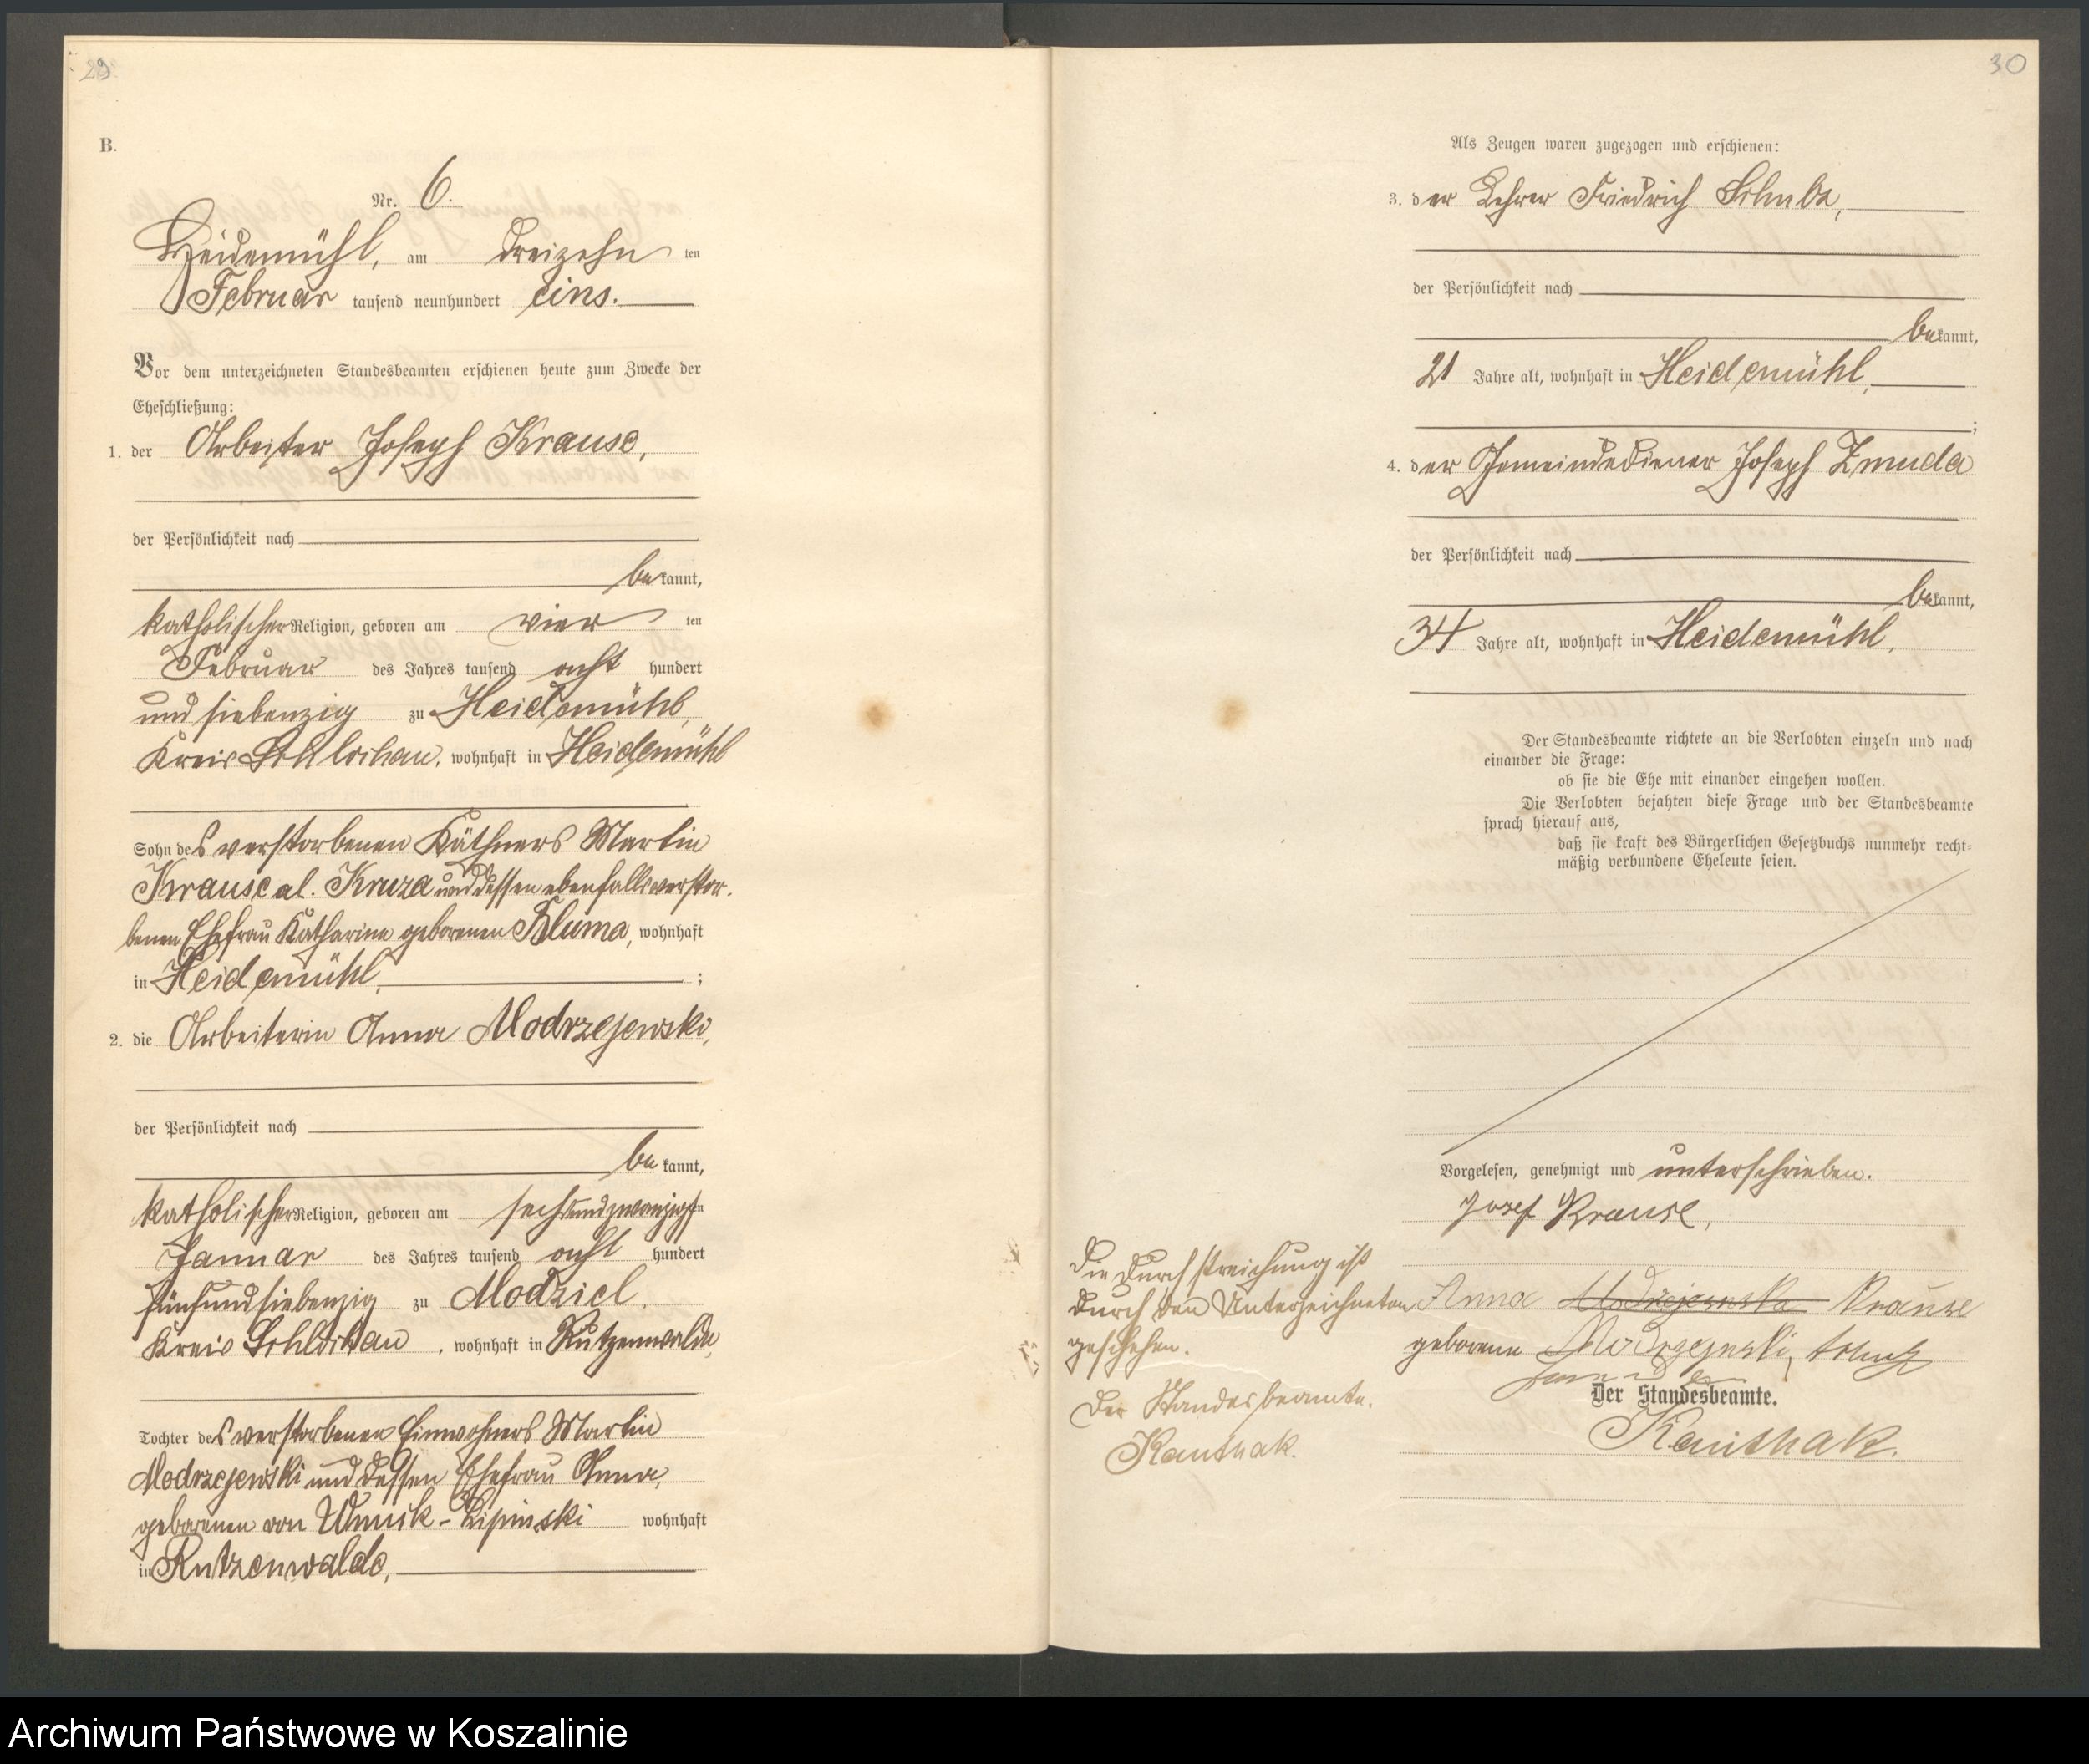 29
B.
Nr. 6.
Heidemühl, am dreizehn ten
Februar tausend neunhundert eins.
Vor dem unterzeichneten Standesbeamten erschienen heute zum Zwecke der
Eheschließung:
1. der Arbeiter Joseph Krause,
der Persönlichkeit nach
bekannt,
katholischer Religion, geboren am vier ten
Februar des Jahres tausend acht hundert
und siebenzig zu Heidemühl,
Kreis Schlochau, wohnhaft in Heidemühl
Sohn des verstorbenen Käthners Martin
Krause al. Kruza und dessen ebenfalls verstor-
benen Ehefrau Katharina geborenen Bluma, wohnhaft
in Heidemühl, ;
2. die Arbeiterin Anna Modrzejewski,
der Persönlichkeit nach
bekannt,
katholischer Religion, geboren am sechsundzwanzigsten
Januar des Jahres tausend acht hundert
fünfundsiebenzig zu Modziel,
Kreis Schlochau, wohnhaft in Kutzenwalde,
Tochter des verstorbenen Einwohners Martin
Modrzejewski und dessen Ehefrau Anna,
geborenen von Wnuck-Lipinski wohnhaft
in Rutzenwalde,
30
Als Zeugen waren zugezogen und erschienen:
3. der Lehrer Friedrich
der Persönlichkeit nach
bekannt,
21 Jahre alt, wohnhaft in Heidemühl,
;
4. der Gemeindediener Joseph Zmuda
der Persönlichkeit nach
bekannt,
34 Jahre alt, wohnhaft in Heidemühl.
Der Standesbeamte richtete an die Verlobten einzeln und nach
einander die Frage:
ob sie die Ehe mit einander eingehen wollen.
Die Verlobten bejahten diese Frage und der Standesbeamte
sprach hierauf aus,
daß sie kraft des Bürgerlichen Gesetzbuchs nunmehr recht-
mäßig verbundene Eheleute seien.
Vorgelesen, genehmigt und unterschrieben.
Josef Krause,
Anna Modrejewska Krause
geborene Modrzejewski,
Der Standesbeamte.
Kanthak.
Die Durchstreichung ist
durch den Unterzeichneten
geschehen.
Der Standesbeamte.
Kanthak.
Archiwum Państwowe w Koszalinie